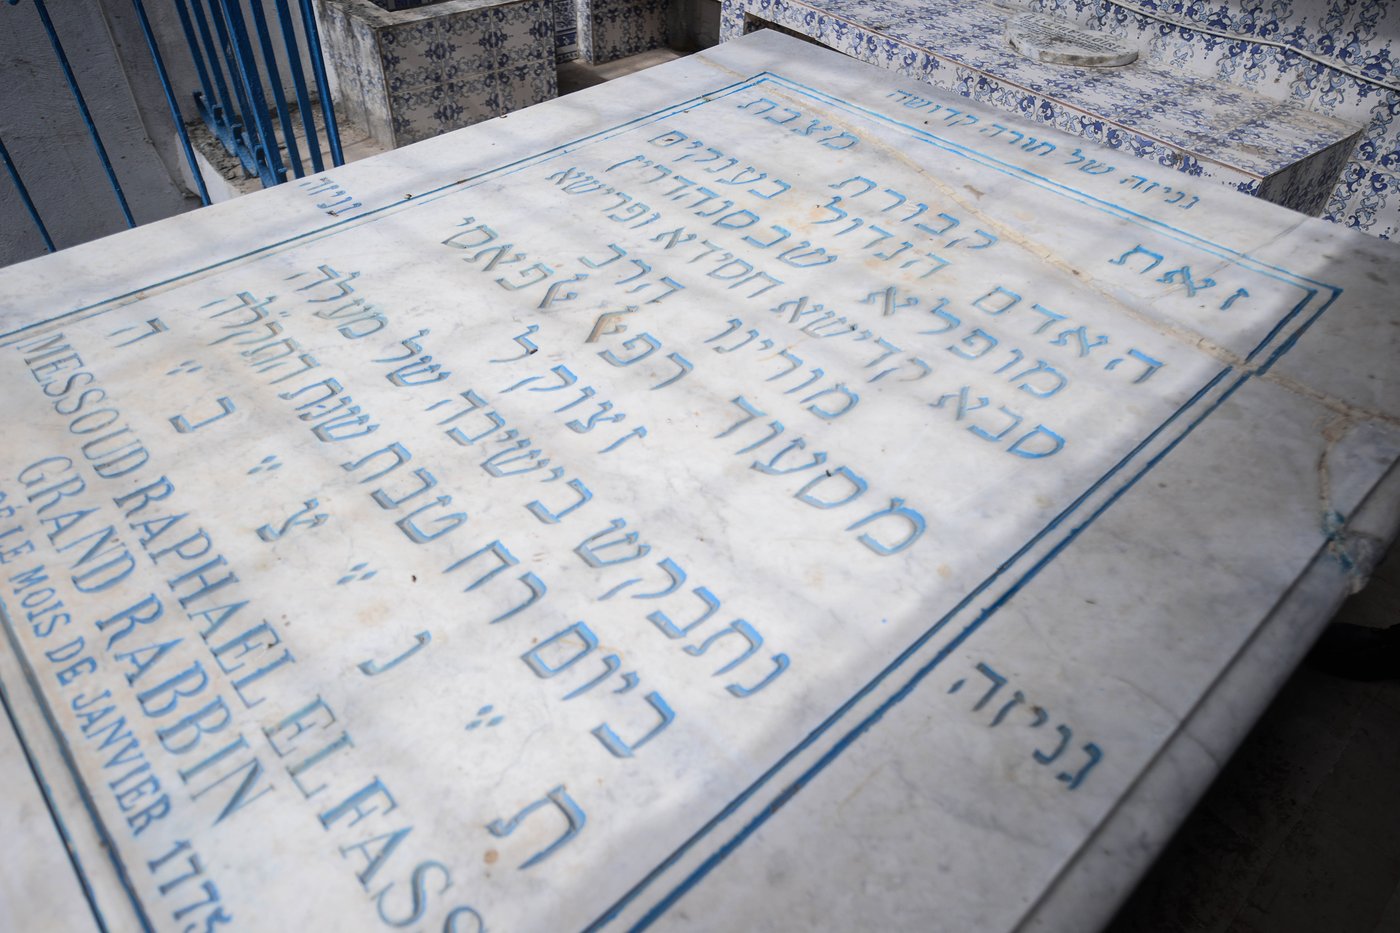 גניזה של תורה קדושה
גניזה
זאת מצבת
קבורת
האדם הגדול בענקים
מופלא שבסנהדרין
סבא קדישא חסידא ופרישא
מורינו הרב
מסעוד רפאל אלפאסי
זצוק״ל
נתבקש בישיבה של מעלה
ביום רח טבת שנת התקלה
ת ״ נ ״ צ ״ ב ״ ה
MESSOUD RAPHAEL ELFASS
GRAND RABBIN
DÉ LE MOIS DE JANVIER 1775
גניזה